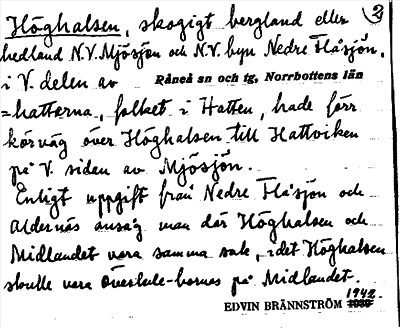 Höghalsen, skogigt bergland eller
hedland N.V. Mjösjön och N.V. byn Nedre Flåsjön,
i V. delen av Råneå sn och tg, Norrbottens län
=hattarna, folket i Hatten, hade förr
körväg över Höghalsen till Hattviken
på V. sidan av Mjösjön.
Enligt uppgift från Nedre Flåsjön och
Aldernäs ansåg man där Höghalsen och
Midlandet vara samma sak, idet Höghalsen
skulle vara Överstule-bornas på Midlandet.
EDVIN BRÄNNSTRÖM 1942